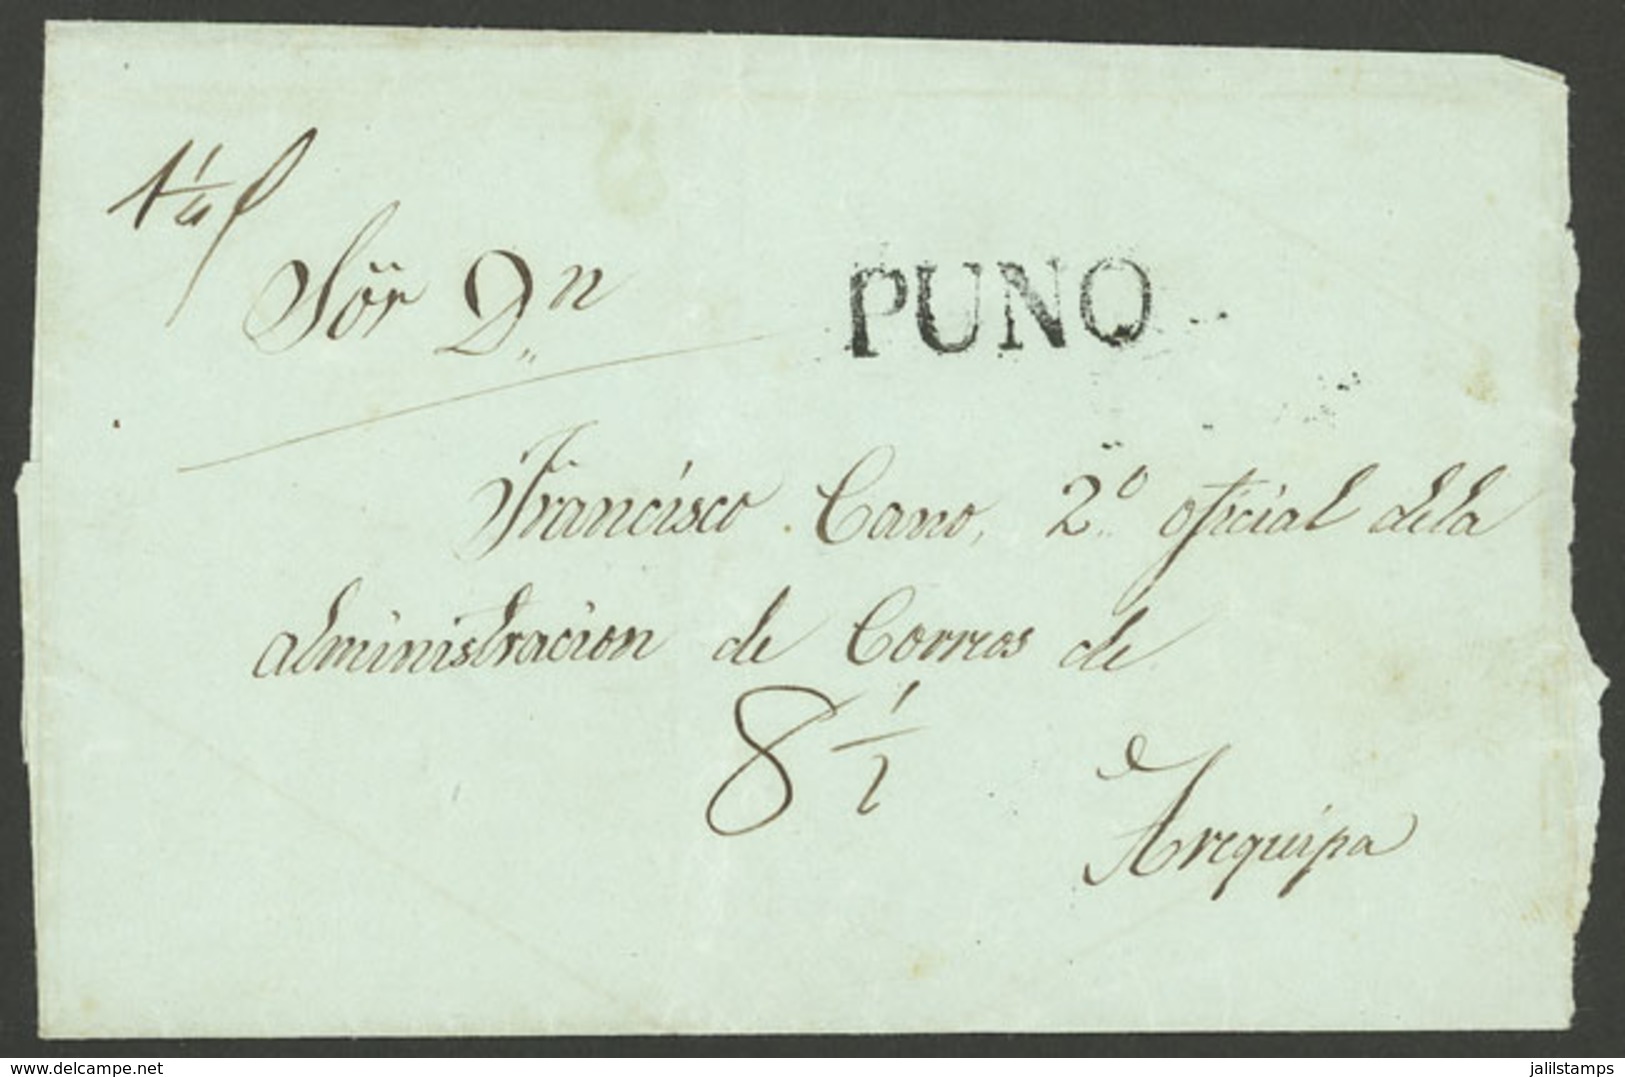 Sör Dn
PUNO
Francisco Cano, 2º oficial dela
administracion de Correos de
8 1/2
Arequipa
www.delcampe.net
jalilstamps